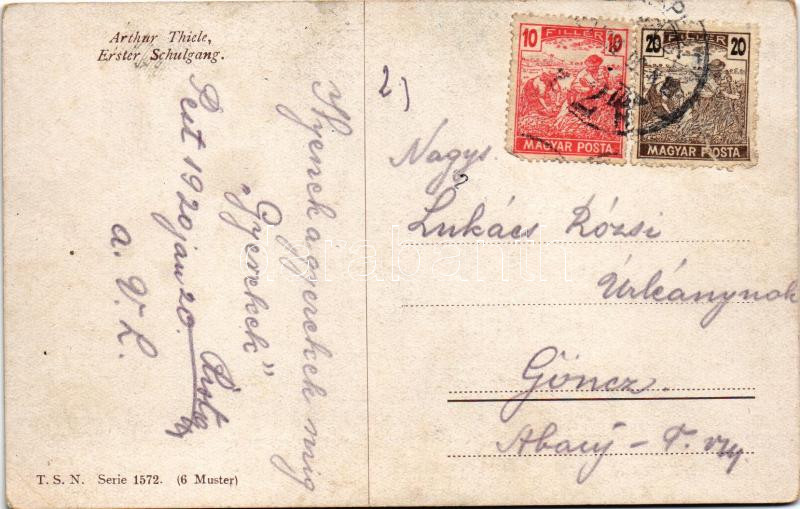 Arthur Thiele,
Erster Schulgang.
Ilyenek a gyerekek míg
"Gyerekek"
Pest 1920 jan 20.
a. V. L.
T. S. N. Serie 1572. (6 Muster)
2)
10 FILLÉR 10
MAGYAR POSTA
20 FILLÉR 20
MAGYAR POSTA
Nagys.
Lukács Rózsi
Úrleánynak
Göncz.
Abaúj-T. vm.
darabanth